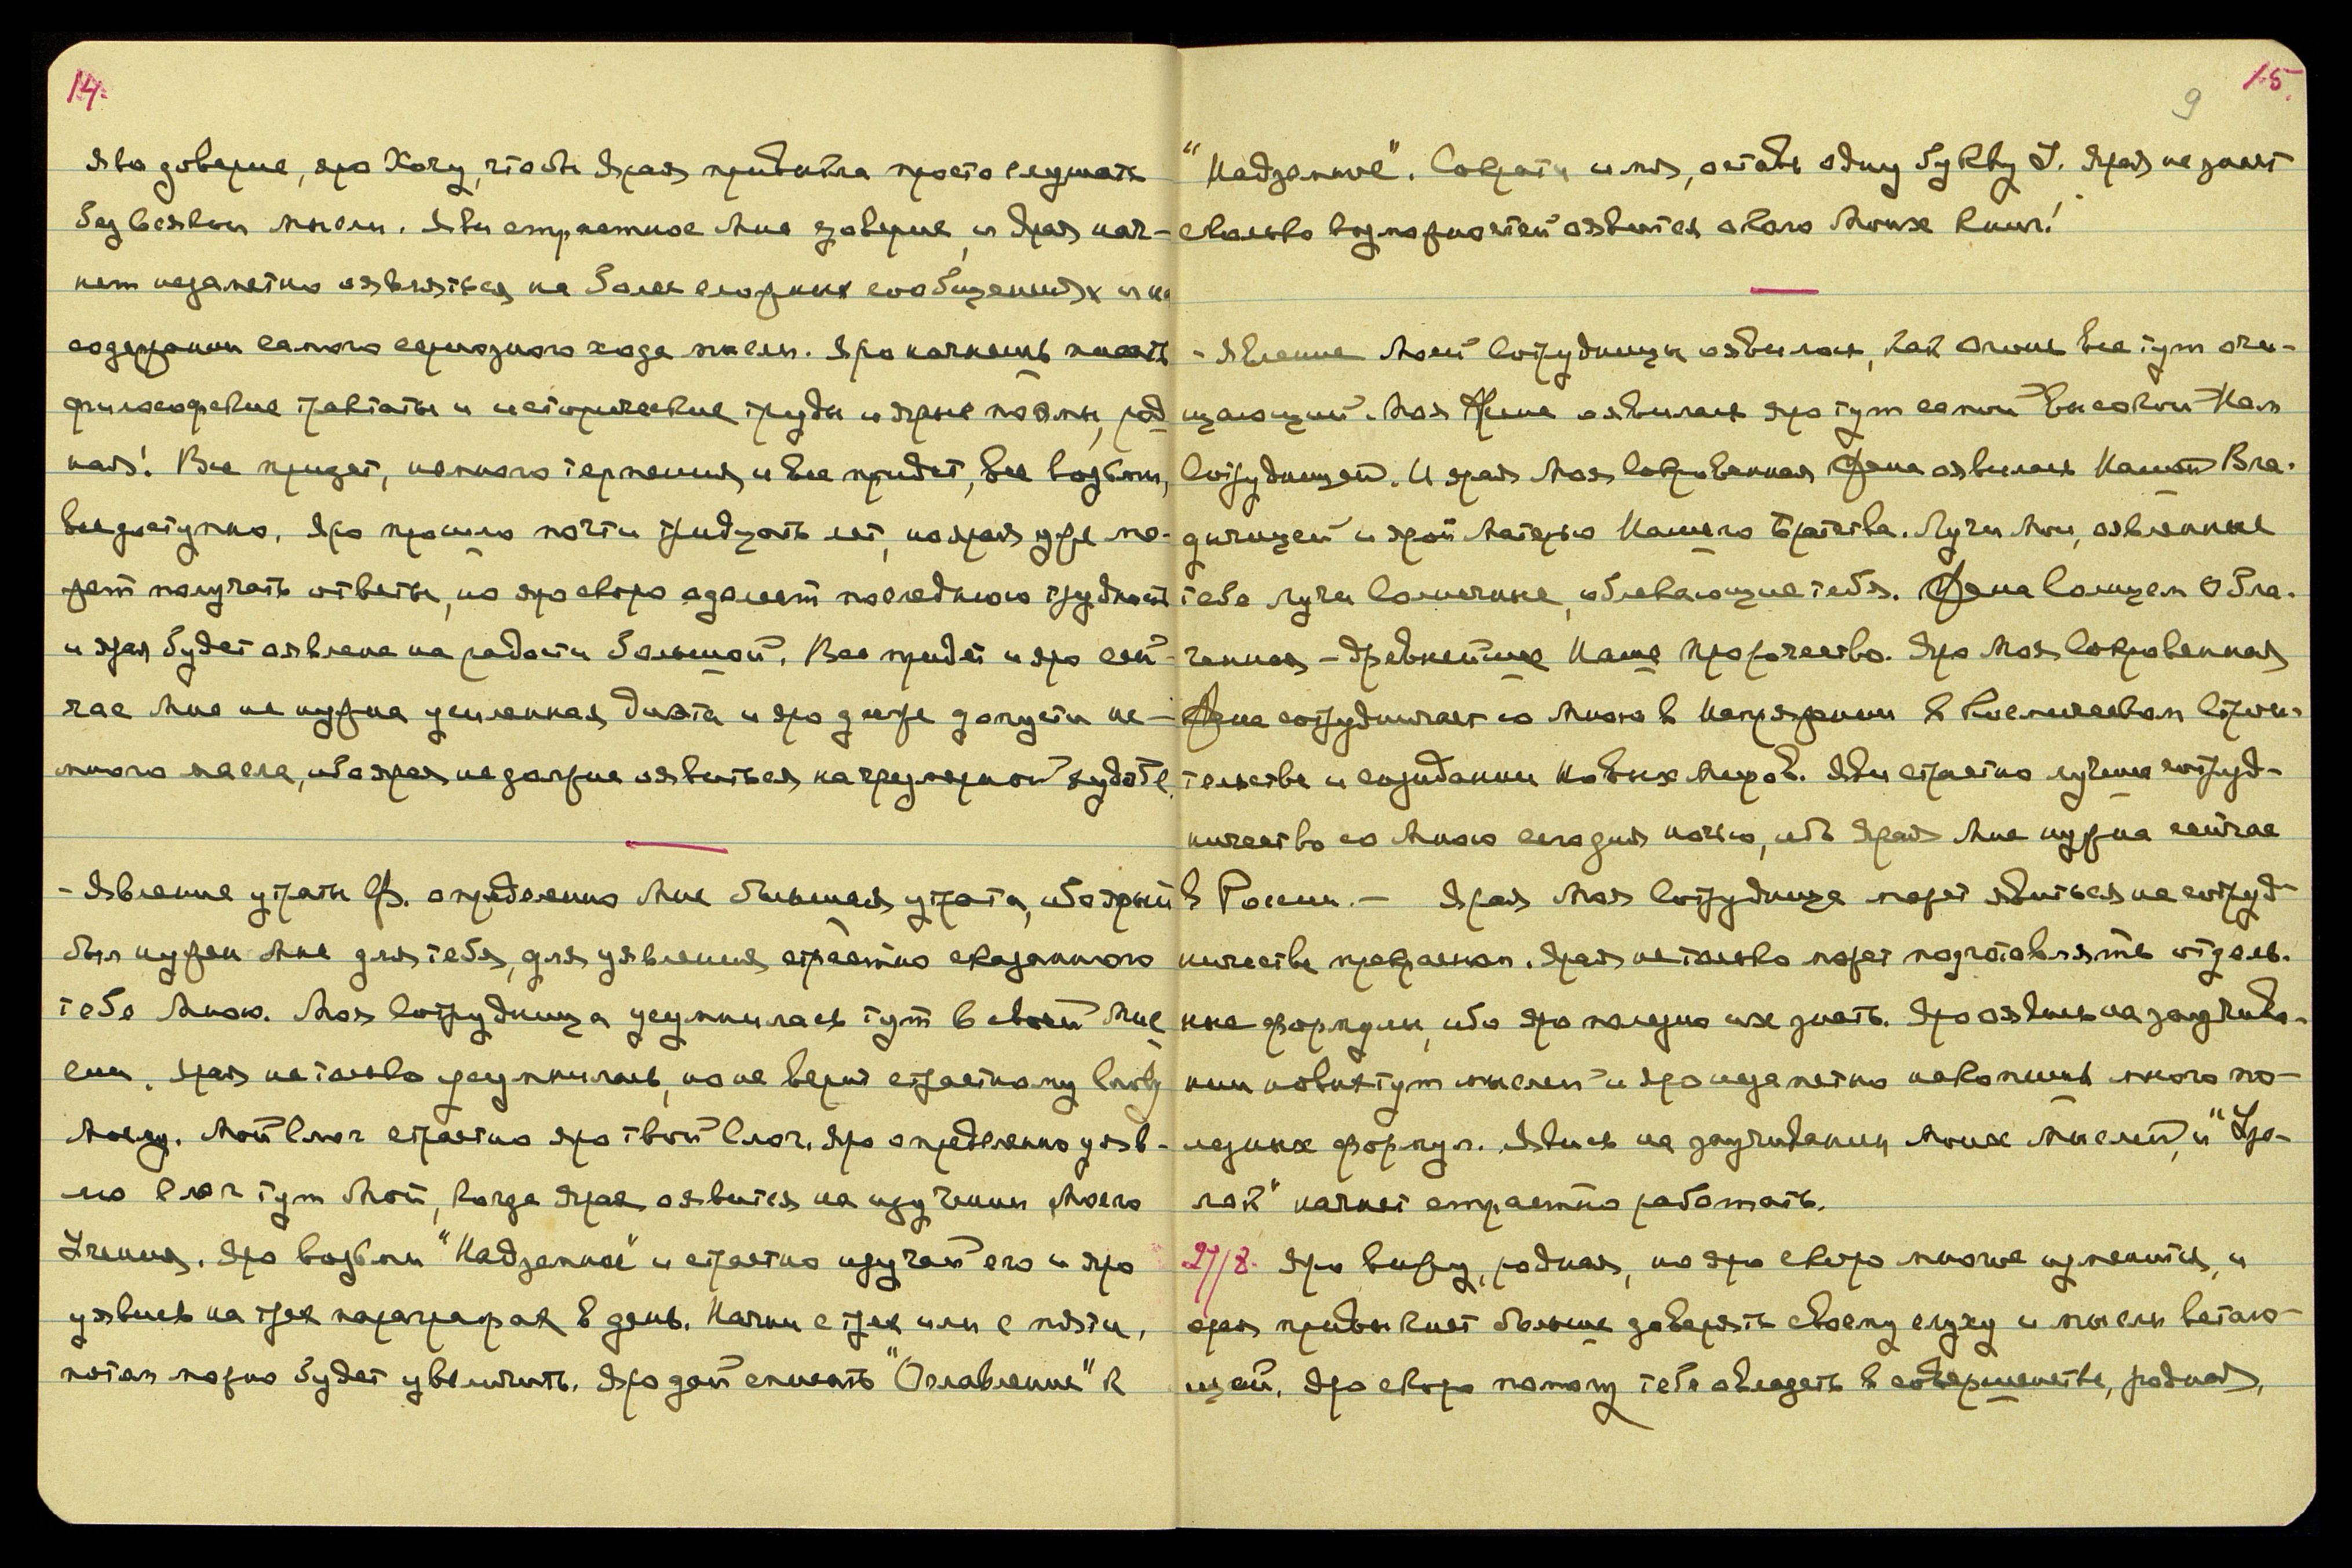 14.
Яви доверие, яро Хочу, чтобы Ярая привыкла просто слушать
без всякой мысли. Яви страстное Мне доверие, и Ярая нач-
нет незаметно являться на более сложных сообщениях и на
содержании самого серьозного хода мысли. Яро начнешь писать
философские трактаты и исторические труды и ярые поэмы, род
ная! Все придет, немного терпения и все придет, все возьми,
вседоступно. Яро прошло почти тридцать лет, но ярая уже мо-
жет получать ответы, но яро скоро одолеет последнюю трудность
и ярая будет явлена на радости большой. Все придет и яро сей-
час Мне не нужна усиленная диэта и яро даже допусти не-
много масла, ибо ярая не должна явиться на чрезмерной худобе.
- Явление утраты Св. определенно Мне большая утрата, ибо ярый
был нужен Мне для тебя, для уявления страстно сказанного
тебе Мною. Моя Сотрудница усумнилась тут в своей Мис
сии. Ярая не только усумнилась, но не верит страстному ключу
Моему. Мой ключ страстно яро твой ключ. Яро определенно уяв-
лю ключ тут Мой, когда Ярая явится на изучении Моего
Учения. Яро возьми "Надземное" и страстно изучай его и яро
уявись на трех параграфах в день. Начни с трех или с пяти,
потом можно будет увеличить. Яро дай списать "Оглавление" к
15.
9
"Надземное". Сократи имя, оставь одну букву У. Ярая не знает
сколько возможностей явится около Моих книг!
- Явление Моей Сотрудницы явилось, как Огонь все тут очи-
щающий. Моя Жена явилась яро тут самой Высокой Нам
Сотрудницей. И ярая Моя Сокровенная Жена явилась Нашей Вла-
дычицей и ярой Матерью Нашего Братства. Лучи Мои, явленные
тебе лучи Солнечные, облекающие тебя. Жена Солнцем Обла-
ченная - Древнейшее Наше Пророчество. Яро Моя Сокровенная
Жена сотрудничает со Мною в Напряжении в Космическом Строи-
тельстве и созидании Новых Миров. Яви страстно лучшее сотруд-
ничество со Мною сегодня ночью, ибо Ярая Мне нужна сейчас
в России. - Ярая Моя Сотрудница может явиться на сотруд-
ничестве прекрасном. Ярая не только может подготовлять отдель-
ные формулы, ибо яро полезно их знать. Яро явись на заучива-
нии новых тут мыслей и яро незаметно накопишь много по-
лезных формул. Явись на заучивании Моих Мыслей, и "Уро-
лок" начнет страстно работать.
27/8. Яро вижу, родная, но яро скоро многое изменится, и
ярая привыкнет больше доверять своему слуху и мысли встаю-
щей. Яро скоро помогу тебе овладеть в совершенстве, родная,